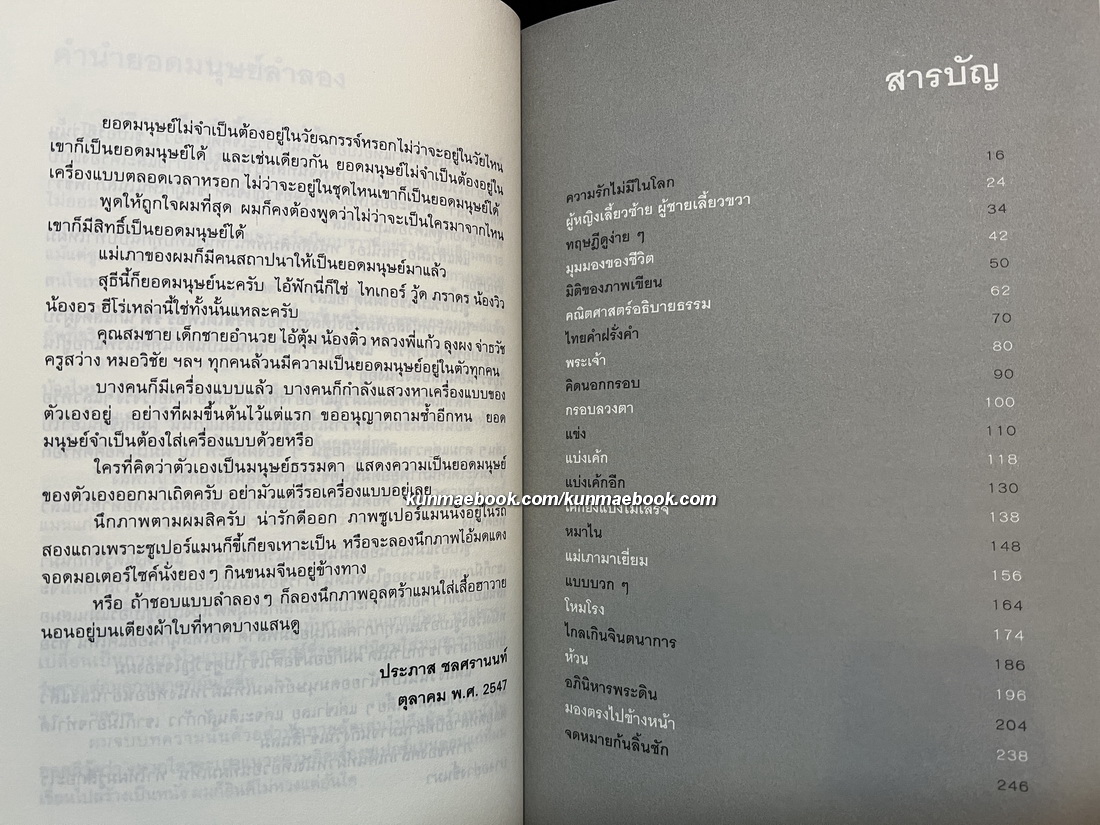 ยอดมนุษย์ไม่จำเป็นต้องอยู่ในวัยฉกรรจ์หรอกไม่ว่าจะอยู่ในวัยไหน
เขาก็เป็นยอดมนุษย์ได้ และเช่นเดียวกัน ยอดมนุษย์ไม่จำเป็นต้องอยู่ใน
เครื่องแบบตลอดเวลาหรอก ไม่ว่าจะอยู่ในชุดไหนเขาก็เป็นยอดมนุษย์ได้
พูดให้ถูกใจผมที่สุด ผมก็คงต้องพูดว่าไม่ว่าจะเป็นใครมาจากไหน
เขาก็มีสิทธิ์เป็นยอดมนุษย์ได้
แม่เภาของผมก็มีคนสถาปนาให้เป็นยอดมนุษย์มาแล้ว
สุธีนี้ก็ยอดมนุษย์นะครับ ไอ้ฟักนี่ก็ใช่ ไทเกอร์ วู้ด ภราดร น้องวิว
น้องอร ฮีโร่เหล่านี้ใช่ทั้งนั้นแหละครับ
คุณสมชาย เด็กชายอำนวย ไอ้ตุ้ม น้องติ๋ว หลวงพี่แก้ว ลุงผง จ่าธวัช
ครูสว่าง หมอวิชัย ฯลฯ ทุกคนล้วนมีความเป็นยอดมนุษย์อยู่ในตัวทุกคน
บางคนก็มีเครื่องแบบแล้ว บางคนก็กำลังแสวงหาเครื่องแบบของ
ตัวเองอยู่ อย่างที่ผมขึ้นต้นไว้แต่แรก ขออนุญาตถามซ้ำอีกหน ยอด
มนุษย์จำเป็นต้องใส่เครื่องแบบด้วยหรือ
ใครที่คิดว่าตัวเองเป็นมนุษย์ธรรมดา แสดงความเป็นยอดมนุษย์
ของตัวเองออกมาเถิดครับ อย่ามัวแต่รีรอเครื่องแบบอยู่เลย
นึกภาพตามผมสิครับ น่ารักดีออก ภาพซูเปอร์แมนนั่งอยู่ในรถ
สองแถวเพราะซูเปอร์แมนก็ขี้เกียจเหาะเป็น หรือจะลองนึกภาพไอ้มดแดง
จอดมอเตอร์ไซค์นั่งยอง ๆ กินขนมจีนอยู่ข้างทาง
หรือ ถ้าชอบแบบลำลอง ๆ ก็ลองนึกภาพอุลตร้าแมนใส่เสื้อฮาวาย
นอนอยู่บนเตียงผ้าใบที่หาดบางแสนดู
ประภาส ชลศรานนท์
ตุลาคม พ.ศ. 2547
สารบัญ
16
ความรักไม่มีในโลก 24
ผู้หญิงเลี้ยวซ้าย ผู้ชายเลี้ยวขวา 34
ทฤษฎีดูง่าย ๆ 42
มุมมองของชีวิต 50
มิติของภาพเขียน 62
คณิตศาสตร์อธิบายธรรม 70
ไทยคำฝรั่งคำ 80
พระเจ้า 90
คิดนอกกรอบ 100
กรอบลวงตา 110
แข่ง 118
แบ่งเค้ก 130
แบ่งเค้กอีก 138
เค้กยังแบ่งไม่เสร็จ 148
หมาใน 156
แม่เภามาเยี่ยม 164
แบบบวก ๆ 174
โหมโรง 186
ไกลเกินจินตนาการ 196
ห้วน 204
อภินิหารพระดิน 238
มองตรงไปข้างหน้า 246
จดหมายก้นลิ้นชัก
kunmaebook.com/kunmaebook.com